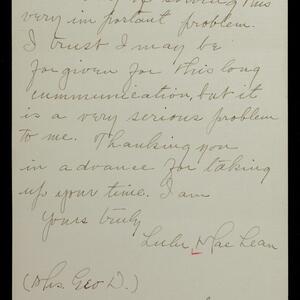 of solving this
very important problem.
I trust I may be
forgiven for this long
communication, but it
is a very serious problem
to me. Thanking you
in advance for taking
up your time. I am
Yours truly
Lulu MacLean
(Mrs. Geo D.)